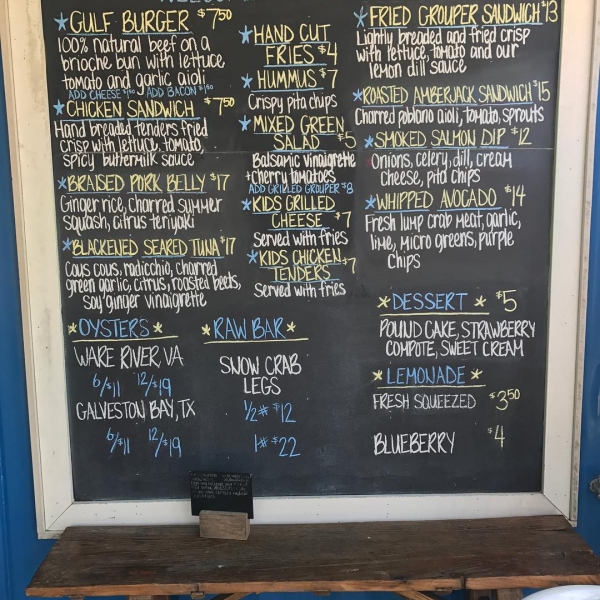 GULF BURGER $7.50
100% natural beef on a
brioche bun with lettuce,
tomato and garlic aioli
ADD CHEESE $1.50 ADD BACON $1.50
CHICKEN SANDWICH $7.50
Hand breaded tenders fried
crisp with lettuce, tomato,
spicy buttermilk sauce
BRAISED PORK BELLY $17
Ginger rice, charred summer
squash, citrus teriyaki
BLACKENED SEARED TUNA $17
Cous cous, radicchio, charred
green garlic, citrus, roasted beets,
soy ginger vinaigrette
HAND CUT
FRIES $4
HUMMUS $7
Crispy pita chips
MIXED GREEN
SALAD $5
Balsamic vinaigrette
+ cherry tomatoes
ADD GRILLED GROUPER $8
KIDS GRILLED
CHEESE $7
Served with fries
KIDS CHICKEN
TENDERS $7
Served with fries
FRIED GROUPER SANDWICH $13
Lightly breaded and fried crisp
with lettuce, tomato and our
lemon dill sauce
ROASTED AMBERJACK SANDWICH $15
Charred poblano aioli, tomato, sprouts
SMOKED SALMON DIP $12
Onions, celery, dill, cream
cheese, pita chips
WHIPPED AVOCADO $14
Fresh lump crab meat, garlic,
lime, micro greens, purple
chips
OYSTERS
WARE RIVER, VA
6/$11 12/$19
GALVESTON BAY, TX
6/$11 12/$19
RAW BAR
SNOW CRAB
LEGS
1/2# $12
1# $22
DESSERT $5
POUND CAKE, STRAWBERRY
COMPOTE, SWEET CREAM
LEMONADE
FRESH SQUEEZED $3.50
BLUEBERRY $4